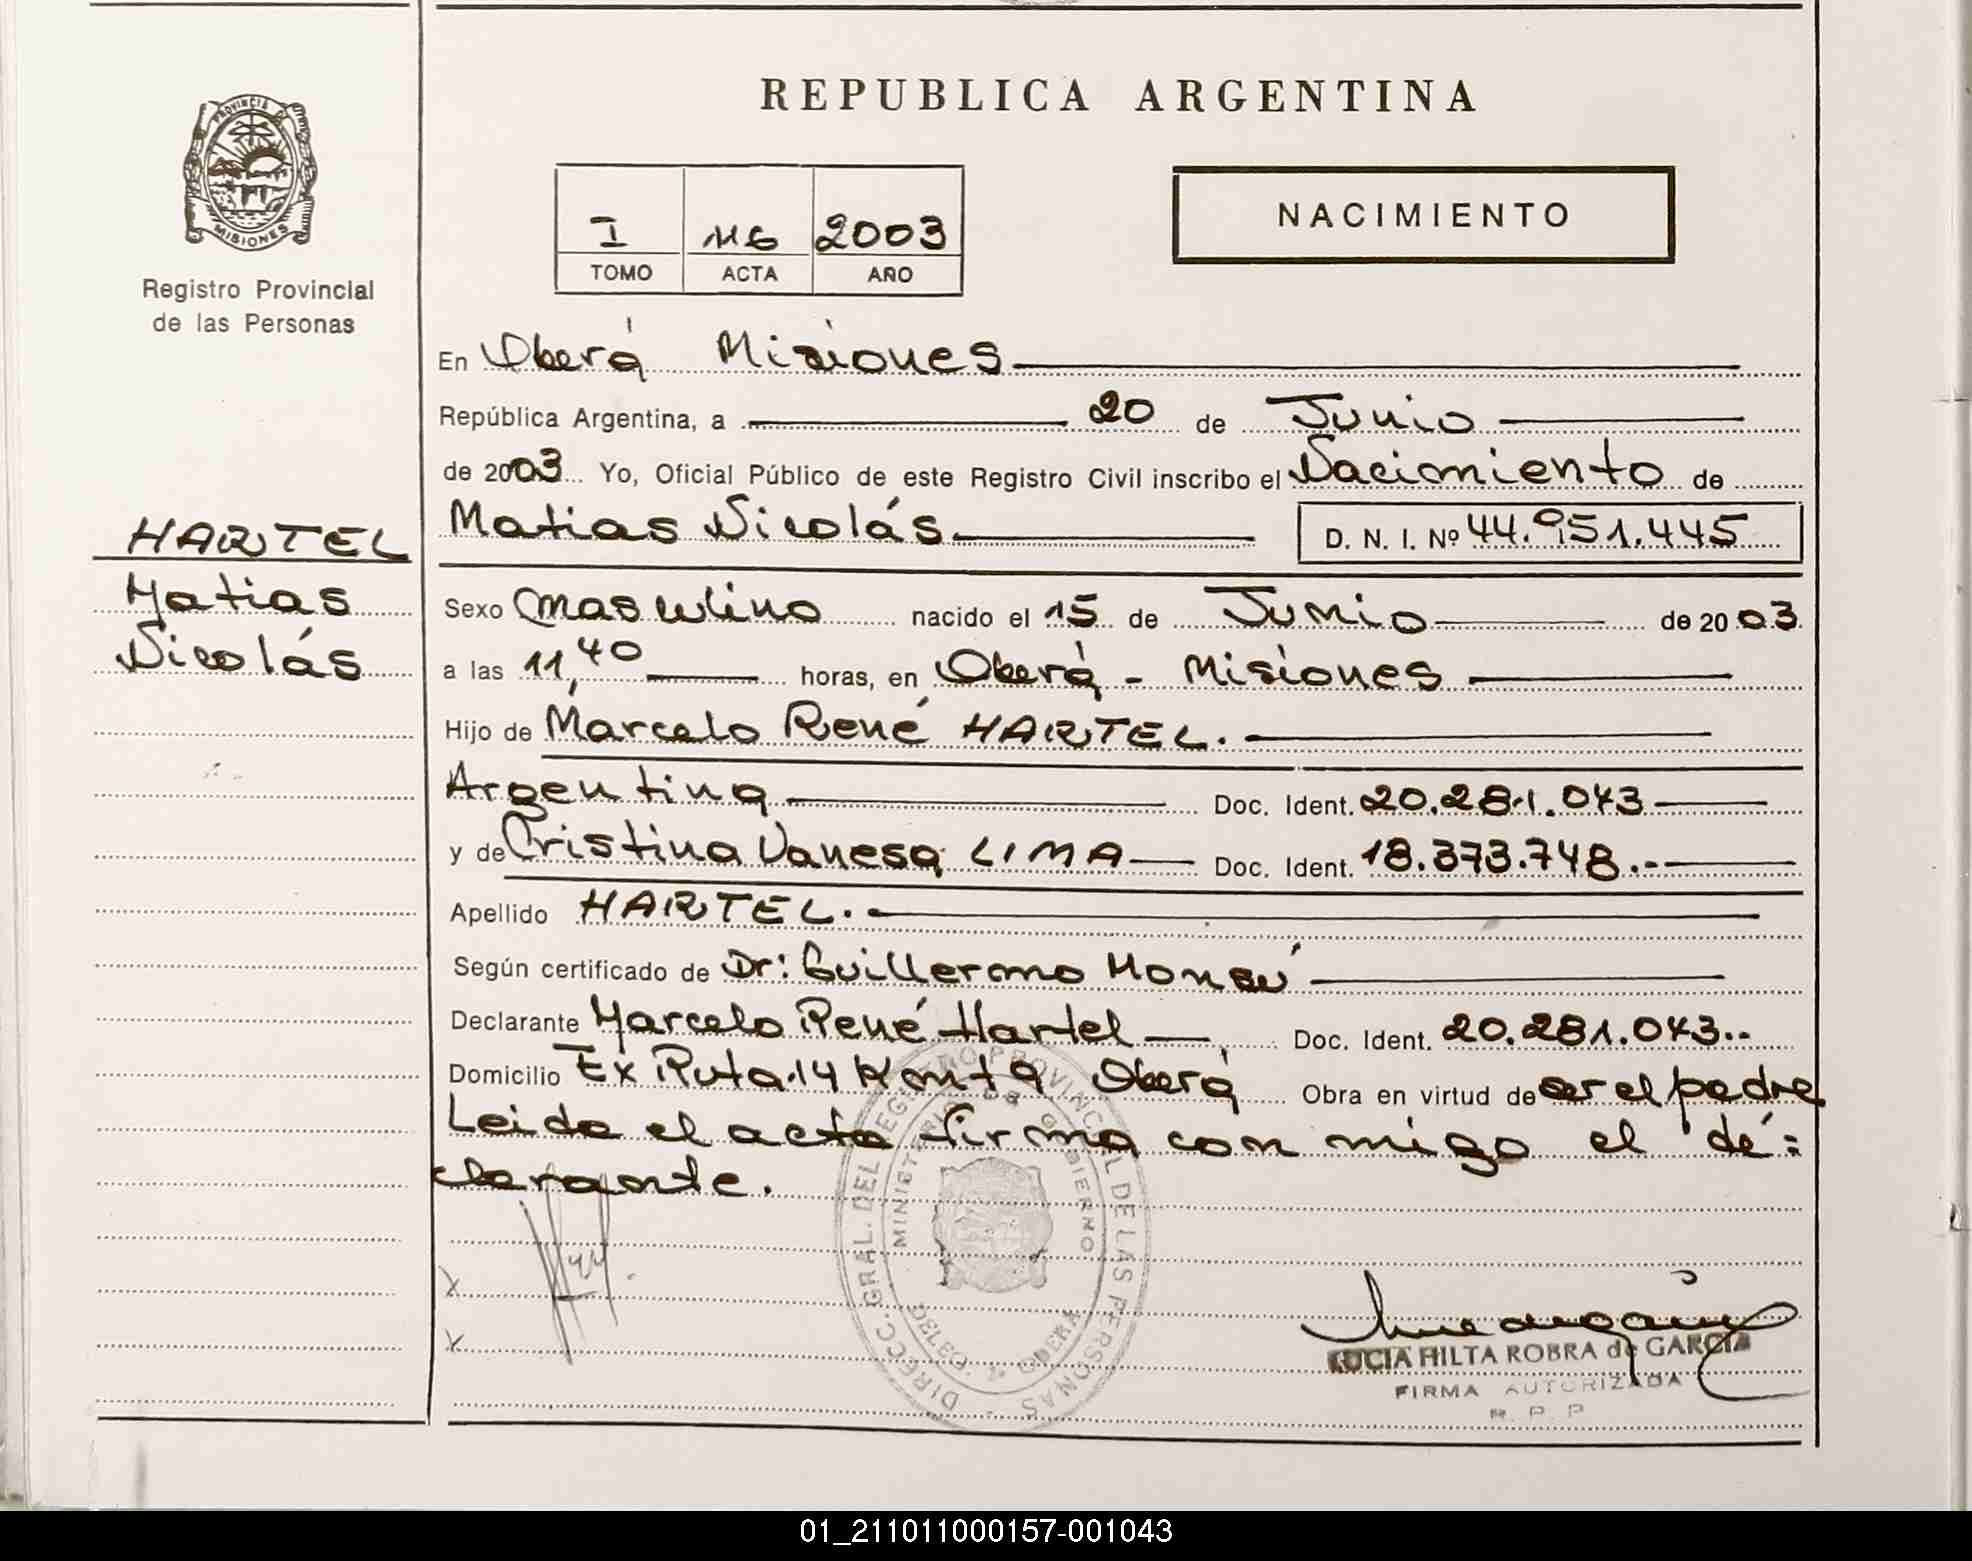 REPUBLICA ARGENTINA
PROVINCIA DE
MISIONES
Registro Provincial
de las Personas
I 116 2003
TOMO ACTA AÑO
NACIMIENTO
HARTEL
Matias
Nicolás
En Oberá Misiones
República Argentina, a 20 de Junio
de 2003 Yo, Oficial Público de este Registro Civil inscribo el Nacimiento de
Matias Nicolás D. N. I. Nº 44.951.445
Sexo masculino nacido el 15 de Junio de 2003
a las 11,40 horas, en Oberá - Misiones
Hijo de Marcelo René HARTEL.
Argentina Doc. Ident. 20.281.043
y de Cristina Vanesa LIMA Doc. Ident. 18.373.748.-
Apellido HARTEL.
Según certificado de Dr: Guillermo Monsú
Declarante Marcelo René Hartel Doc. Ident. 20.281.043..
Domicilio Ex Ruta 14 Oberá Obra en virtud de ser el padre
Leida el acta firma con migo el de:
clarante.
DIRECC. GRAL. DEL REGISTRO PROVINCIAL DE LAS PERSONAS
MINISTERIO DE GOBIERNO
DELEG. 2ª OBERA
LUCIA HILTA ROBRA de GARCIA
FIRMA AUTORIZADA
R. P. P
01_211011000157-001043